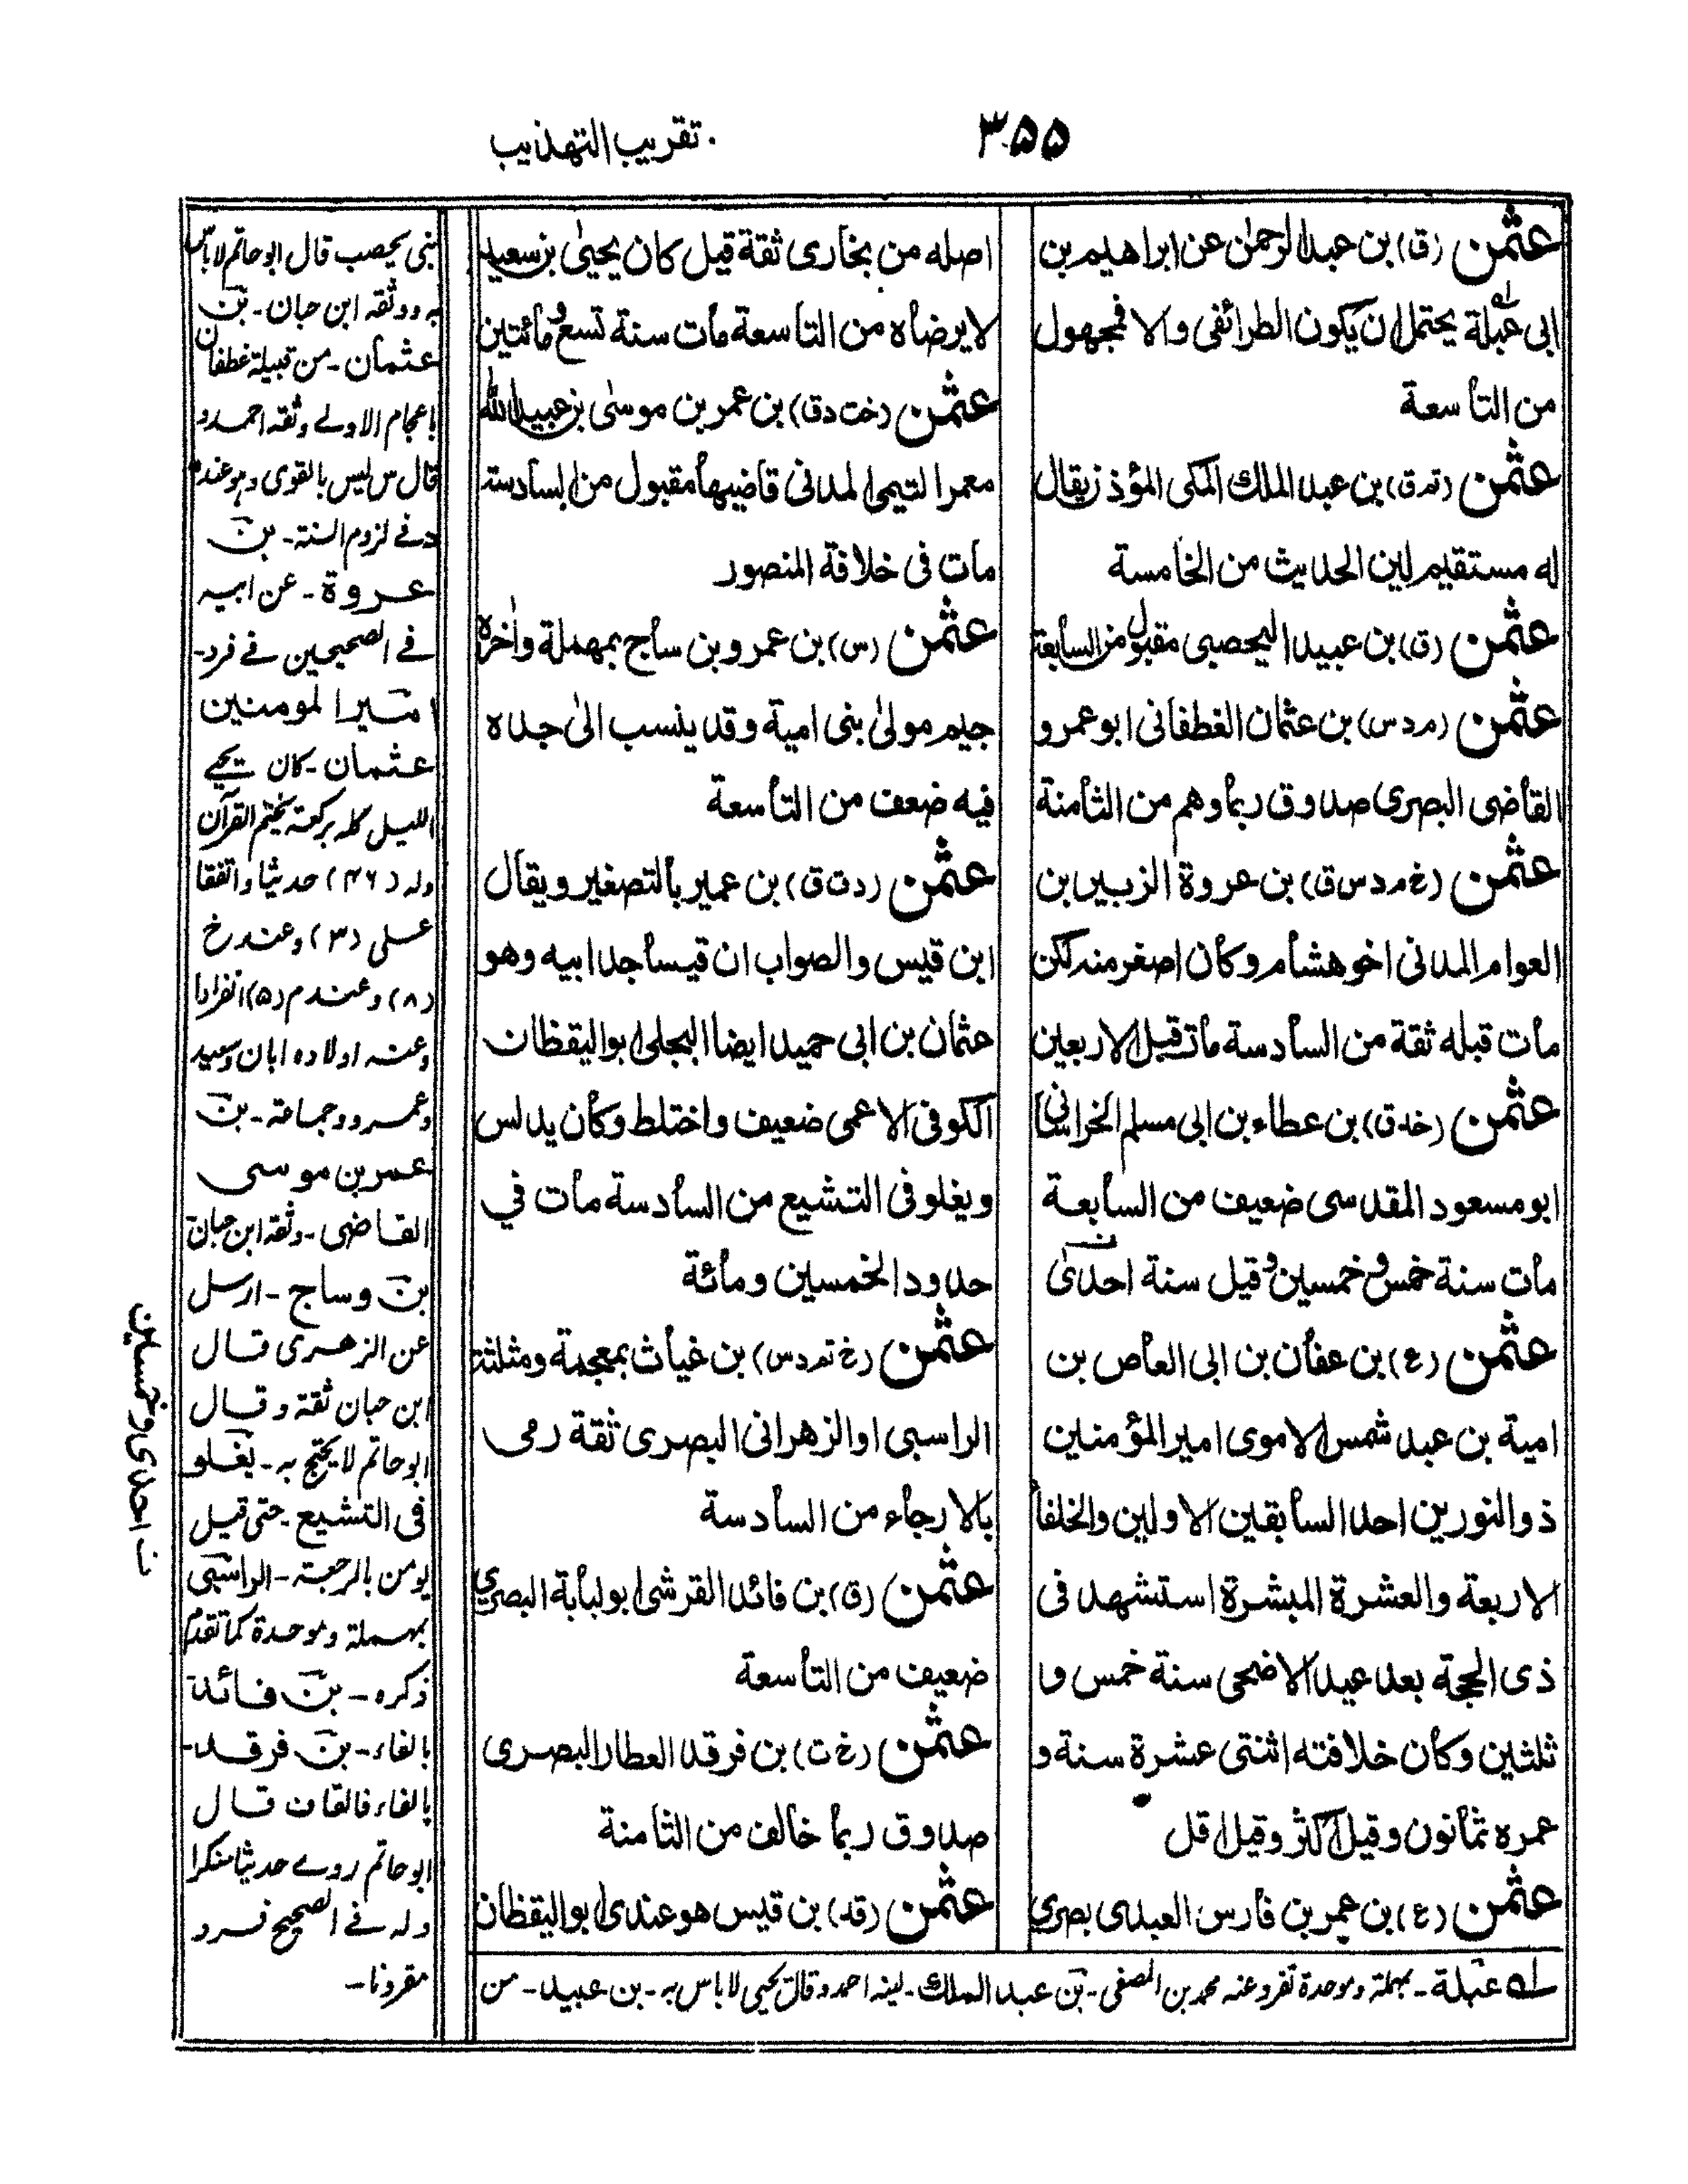 ٣٥٥
تقريب التهذيب
عثمن (ق) بن عبد الرحمن عن ابراهيم بن
ابى عبلة يحتمل ان يكون الطرائفى والا فمجهول
من التاسعة
عثمن (تم ق) بن عبد الملك المكى المؤذن يقال
له مستقيم لين الحديث من الخامسة
عثمن (ق) بن عبيد اليحصبى مقبول من السابعة
عثمن (م د س) بن عثمان الغطفانى ابو عمرو
القاضى البصرى صدوق ربما وهم من الثامنة
عثمن (خ م د س ق) بن عروة الزبير بن
العوام المدنى اخو هشام وكان اصغر منه لكن
مات قبله ثقة من السادسة مات قبل الاربعين
عثمن (خد ق) بن عطاء بن ابى مسلم الخراسانى
ابو مسعود المقدسى ضعيف من السابعة
مات سنة خمس وخمسين وقيل سنة احدى
عثمن (ع) بن عفان بن ابى العاص بن
امية بن عبد شمس الاموى امير المؤمنين
ذو النورين احد السابقين الاولين والخلفاء
الاربعة والعشرة المبشرة استشهد فى
ذى الحجة بعد عيد الاضحى سنة خمس و
ثلثين وكان خلافته اثنتى عشرة سنة و
عمره ثمانون وقيل اكثر وقيل اقل
عثمن (ع) بن عمر بن فارس العبدى بصرى
اصله من بخارى ثقة قيل كان يحيى بن سعيد
لا يرضاه من التاسعة مات سنة تسع ومائتين
عثمن (خت د ق) بن عمر بن موسى بن عبيد الله
معمر التيمى المدنى قاضيها مقبول من السادسة
مات فى خلافة المنصور
عثمن (س) بن عمرو بن ساج بمهملة وآخره
جيم مولى بنى امية وقد ينسب الى جده
فيه ضعف من التاسعة
عثمن (د ت ق) بن عمير بالتصغير ويقال
ابن قيس والصواب ان قيسا جد ابيه وهو
عثمان بن ابى حميد ايضا البجلى ابو اليقظان
الكوفى الاعمى ضعيف واختلط وكان يدلس
ويغلو فى التشيع من السادسة مات في
حدود الخمسين ومائة
عثمن (خ تم د س) بن غياث بمعجمة ومثلثة
الراسبى او الزهرانى البصرى ثقة رمى
بالارجاء من السادسة
عثمن (ق) بن فائد القرشى ابو لبابة البصري
ضعيف من التاسعة
عثمن (خ ت) بن فرقد العطار البصرى
صدوق ربما خالف من الثامنة
عثمن (قد) بن قيس هو عندى ابو اليقظان
له عبلة ـ بمهملة وموحدة تفرد عنه محمد بن المصفى ـ بن عبد الملك ـ لينه احمد وقال يحيى لا باس به ـ بن عبيد ـ من
بنى يحصب قال ابو حاتم لا باس
به ووثقه ابن حبان ـ بن
عثمان ـ من قبيلة غطفان
باعجام الاولے وثقه احمد و
قال س ليس بالقوى وہو عند
د فے لزوم السنة ـ بن
عروة ـ عن ابيه
فے الصحيحين فے فرد ـ
امير المومنين
عثمان ـ كان يحيے
الليل كله بركعة يختم القرآن
وله (١٤٦) حديثا واتفقا
على (٣) وعند خ
(٨) وعند م (٥) انفرادا
وعنه اولاده ابان وسعيد
وعمرو وجماعة ـ بن
عمر بن موسى
القاضى ـ وثقه ابن حبان
بن وساج ـ ارسل
عن الزهرى قال
ابن حبان ثقة وقال
ابو حاتم لا يحتج به ـ يغلو
فى التشيع ـ حتى قيل
يومن بالرجعة ـ الراسبى
بمهملة وموحدة كما تقدم
ذكره ـ بن فائد
بالفاء ـ بن فرقد ـ
بالفاء فالقاف قال
ابو حاتم روے حديثا منكرا
وله فے الصحيح فرد
مقرونا ـ
ن احدى وخمسين